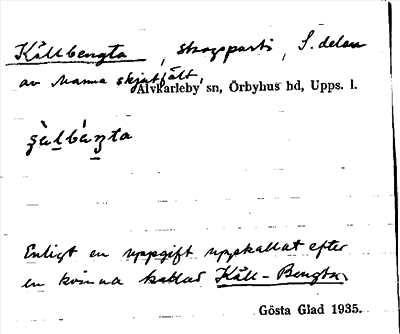 Källbengta, skogsparti, S. delen
av Marma skjutfält,
Älvkarleby sn, Örbyhus hd, Upps. l.
Enligt en uppgift uppkallat efter
en kvinna kallad Käll-Bengta.
Gösta Glad 1935.